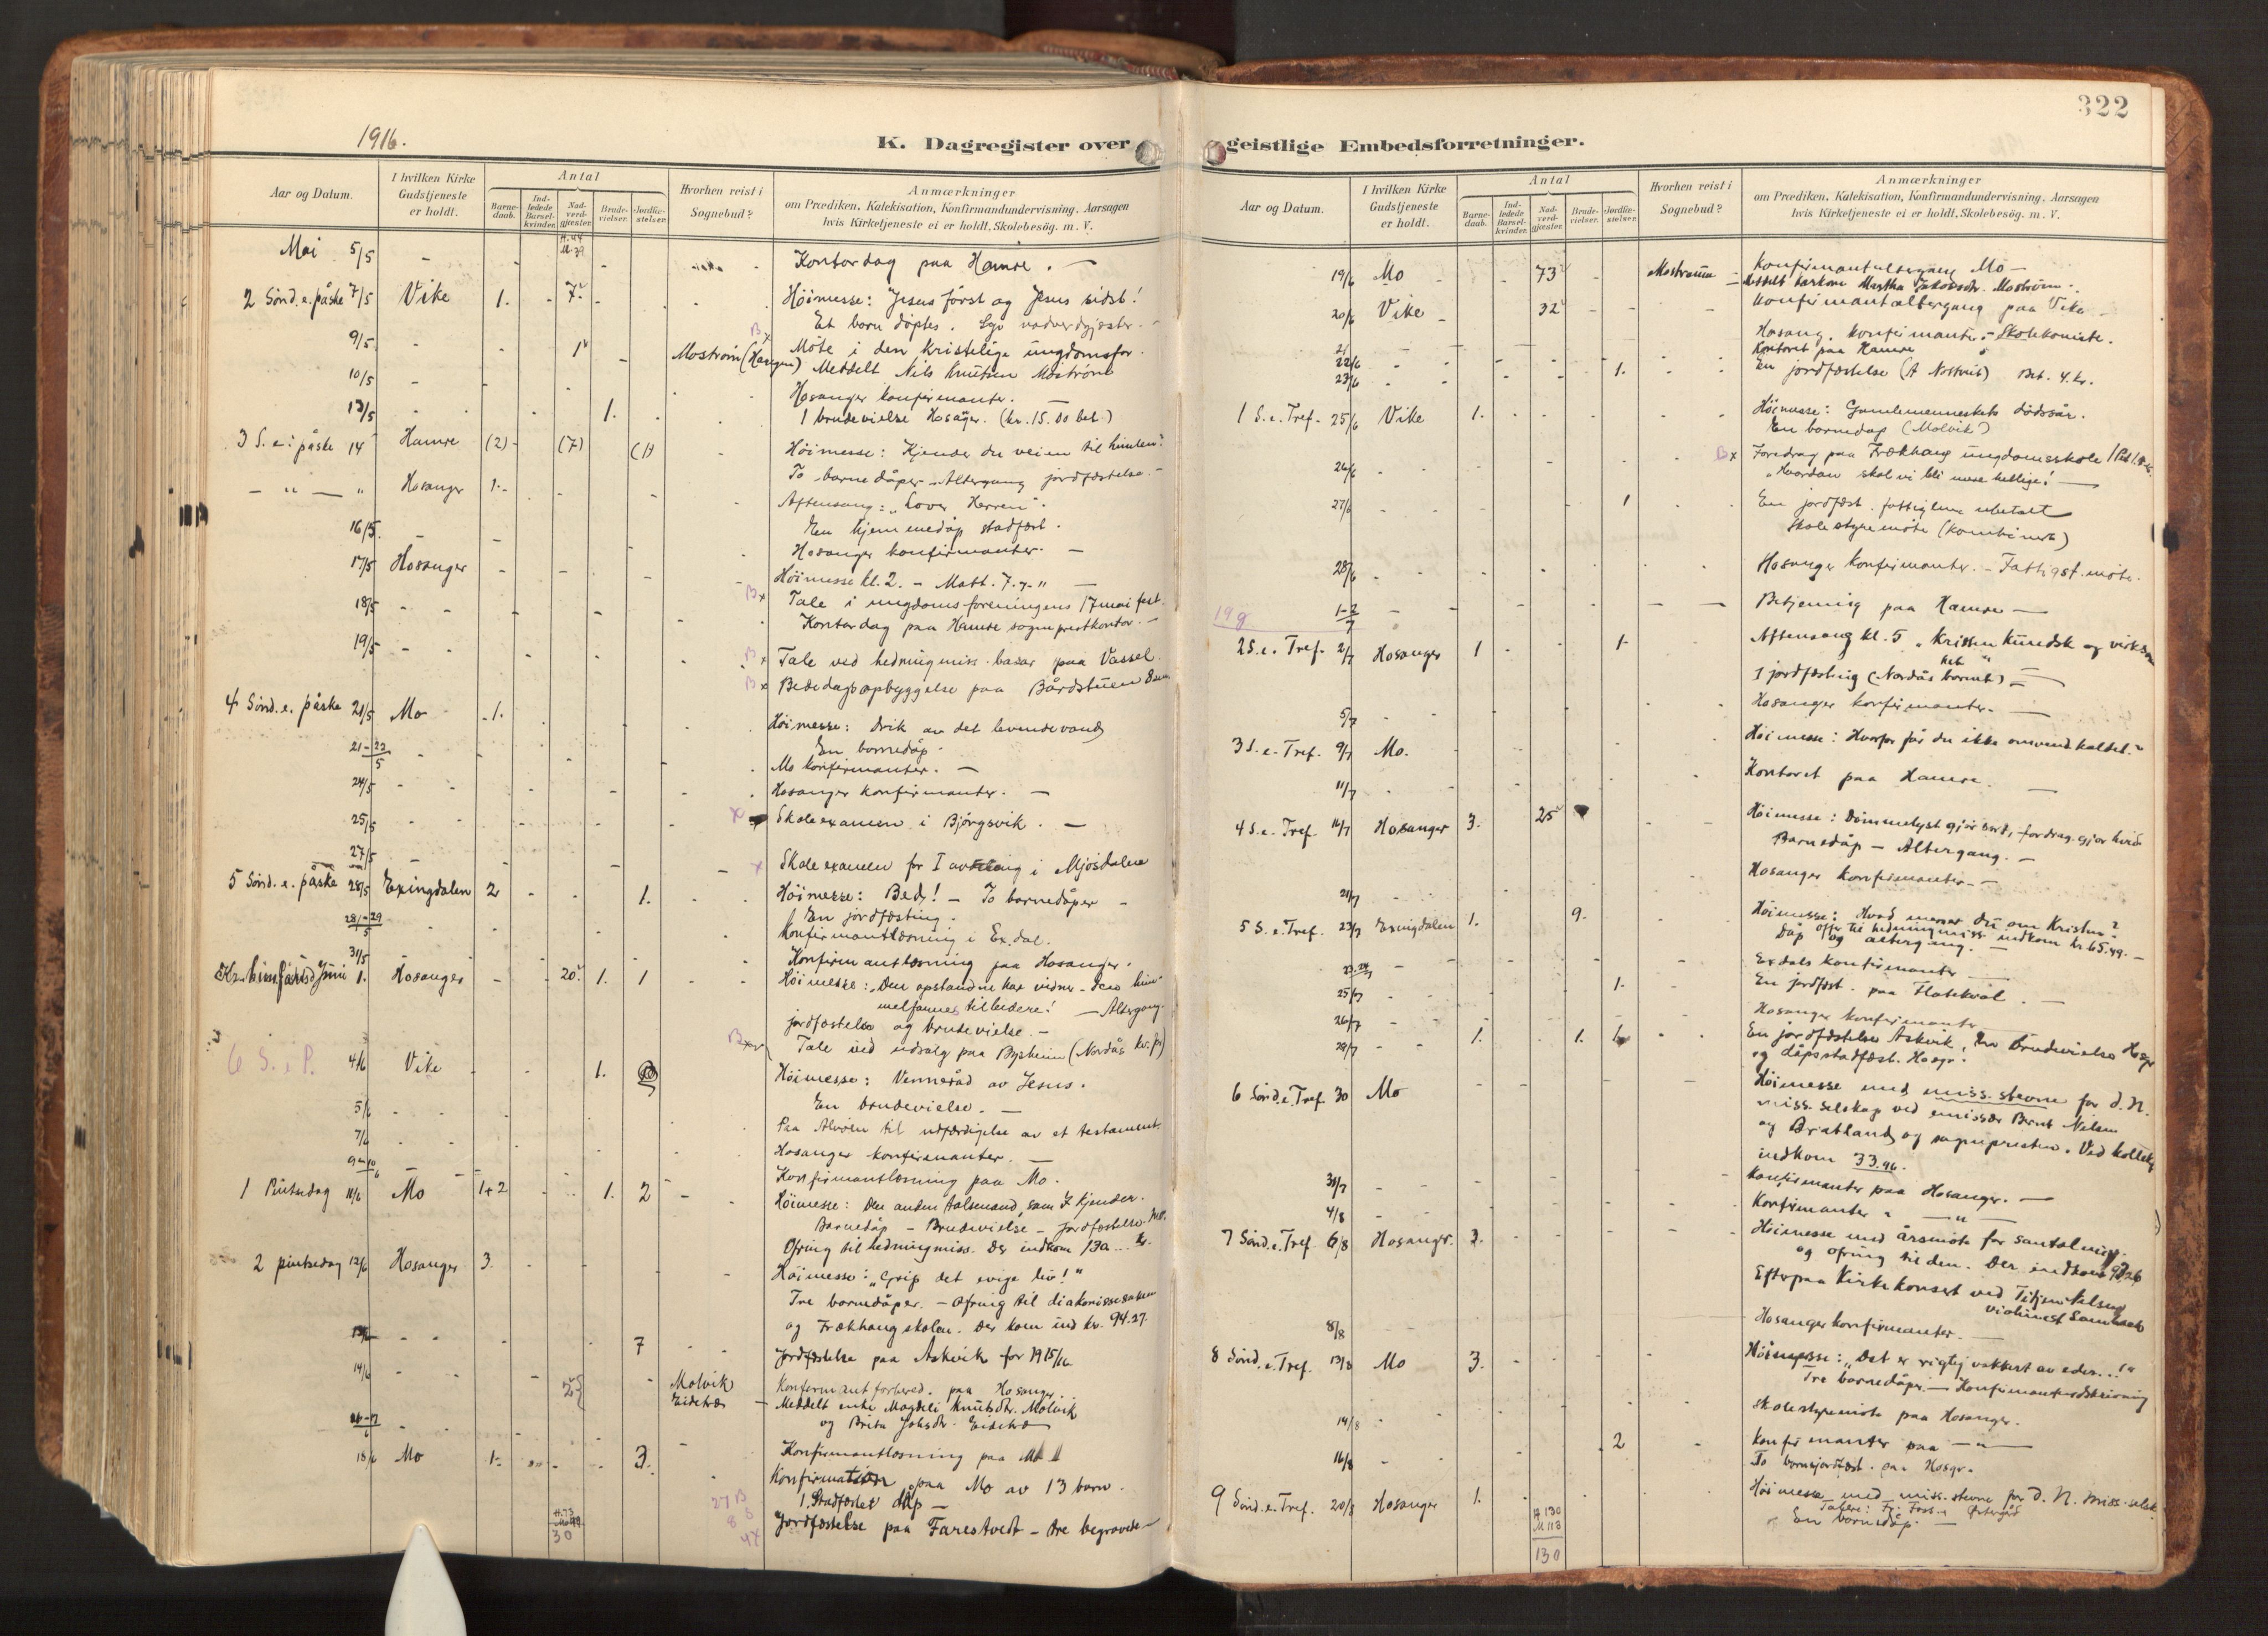 1916.
K. Dagregister over
Aar og Datum.
I hvilken Kirke Gudstjeneste er holdt.
Antal
Barne-daab.
Ind-ledede Barsel-kvinder.
Nad-verd-gjæster.
Brude-vielser.
Jordfæ-stelser.
Hvorhen reist i Sognebud?
Anmærkninger
om Prædiken, Katekisation, Konfirmandundervisning. Aarsagen
hvis Kirketjeneste ei er holdt. Skolebesög. m. V.
H. 44
M. 39
Mai 5/5 - - - - Kontordag paa Hamre. -
2 Sönd. e. påske 7/5 Vike 1. - 7. - Höimesse: Jesus först og Jesus sidst!
Et barn döptes. Syv nadverdgjæster. -
9/5 - - 1 - Moström (Haugen) B x Möte i den Kristelige ungdomsfor.
Meddelt Nils Knutsen Moström
10/5 - - Hosanger konfirmanter. -
13/5 - - - 1. 1 brudevielse Hosanger. (kr. 15.00 bet.)
3 S. e. påske 14 Hamre (2) - (7) (1) - Höimesse: Kjender du veien til himlen?
To barnedåper - Altergang jordfæstelse. -
- " - " Hosanger 1. - - - Aftensang: "Lover Herren".
En hjemmedåp stadfæst.
16/5. - - - Hosanger konfirmanter. -
17/5 Hosanger - - - Höimesse kl. 2. - Matt. 7. 7-11 -
B x Tale i ungdomsforeningens 17 mai fest.
18/5 - - - - Kontordag paa Hamre sogneprestkontor. -
19/5 - - - - B x Tale ved hedningmiss. basar paa Vassel.
B x Bededagsopbyggelse paa Bårdstuen
4 Sönd. e. påske 21/5 Mo 1. Höimesse: Drik av det levende vand
En barnedåp -
21-22/5 - - - Mo konfirmanter. -
24/5 - - - Hosanger konfirmanter. -
25/5 - - - x Skoleexamen i Bjørgsvik. -
27/5 - - - x Skoleexamen for I avdeling i Mjösdalen
5 Sönd. e. påske 28/5 Exingdalen 2 - - 1. Höimesse: Bed! - To barnedåper -
En jordfæsting.
28-29/5 - Konfirmantlæsning i Ex.dal.
31/5 - Konfirmantlæsning paa Hosanger.
Kr. himf.artsd Juni 1. Hosanger - - 20 1. 1 - - Höimesse: Den opstandne har vidner - Den him-
melfarnes tilbedere! - Altergang.
jordfæstelse og brudevielse. -
B x Tale ved udsalg paa Bysheim (Nordås kv. f)
6 S. e. P. 4/6 Vike 1. Höimesse: Venneråd av Jesus.
En brudevielse. -
5/6 - - Paa Alvøen til udfærdigelse av et testament.
7/6 - - Hosanger konfirmanter. -
9-10/6 - Konfirmantlæsning paa Mo.
1 Pintsedag 11/6 Mo 1+2 - - 1. 2 - - Höimesse: Den anden talsmand, som I kjender.
Barnedåp - Brudevielse - Jordfæstelse.
Ofring til hedningmiss. Der indkom
2 pintsedag 12/6 Hosanger 3. - Höimesse: "Grip det evige liv!"
Tre barnedåper. - Ofring til diakonissesaken
og Frækhaugskolen. Der kom ind kr. 94.27.
13/6 - - 7 - Jordfæstelse paa Askvik for 1915/16
14/6 - 2 Molvik
Eidetræ Konfirmantforbered. paa Hosanger.
- Meddelt enke Magdeli Knutsdtr. Molvik
og Brita Johsdtr. Eidetræ
16-17/6 - - Konfirmantlæsning paa Mo
18/6 Mo 1. - - - 3. Konfirmation paa Mo av 13 barn.
1. Stadfæstet dåp -
Jordfæstelse paa Farestvedt - tre begravede -
H. 73
30
27 B
8 6
4 x
322
geistlige Embedsforretninger.
Aar og Datum.
I hvilken Kirke Gudstjeneste er holdt.
Antal
Barne-daab.
Ind-ledede Barsel-kvinder.
Nad-verd-gjæster.
Brude-vielser.
Jordfæ-stelser.
Hvorhen reist i Sognebud?
Anmærkninger
om Prædiken, Katekisation, Konfirmandundervisning. Aarsagen
hvis Kirketjeneste ei er holdt. Skolebesög. m. V.
19/6 Mo - - 73 - Mostraum - Konfirmantaltergang Mo -
Meddelt barkone Martha Moström.
20/6 Vike - 32 - - - Konfirmantaltergang paa Vike -
21 - Hosang. konfirmanter. - Skolekomite.
22/6 - Kontoret paa Hamre
23/6 - 1. En jordfæstelse (A Nottveit) Bet. 4. kr.
1 S. e. Tref. 25/6 Vike 1. - - Höimesse: Gamlemenneskets dödssår.
En barnedåp (Molvik)
26/6 - B x Foredrag paa Frækhaug ungdomsskole
"Hvordan skal vi bli mere hellige! -
27/6 - 1 En jordfæst. fattiglem ubetalt
Skolestyremöte (kombinert)
28/6 - Hosanger konfirmanter. - Fattigst. möte.
19 8 1-2/7 - - - Betjening paa Hamre -
2 S. e. Tref. 2/7 Hosanger 1 - 1 Aftensang kl. 5 "Kristen kundsk og virksom
het"
1 jordfæsting (Nordås barnet) -
5/7 - - Hosanger konfirmanter. -
3 S. e. Tref. 9/7 Mo. Höimesse: Hvorfor får du ikke omvend kaldet?
11/7 - - Kontoret paa Hamre. -
4 S. e. Tref. 16/7 Hosanger 3. 25 - - Höimesse: Dömmelyst gjör sort, - fordrag. gjör hvid
Barnedåp - Altergang. -
21/7 - - Hosanger konfirmanter. -
5 S. e. Tref. 23/7 Exingdalen 1. 9. Höimesse: Hvad mener du om Kristus?
Offer til hedningmiss indkom kr 65.49. -
Dåp og altergang. -
23-24/7 - Exdals konfirmanter -
25/7 - - 1. En jordfæst. paa Flatekvål. -
26/7 - - Hosanger konfirmanter -
29/7 - 1. 1. En jordfæstelse Askvik, En Brudevielse Hosgr
og dåpsstadfæst. Hosgr.
6 Sönd. e. Tref. 30 Mo Höimesse med miss. stevne for d. N.
miss. selskap ved emissær Bernt Nelsen
og Bratland og sognepresten. Ved kollekt
indkom 33.96.
31/7 - - Konfirmanter paa Hosanger. -
4/8 - - Konfirmanter " - " -
7 Sönd. e. Tref. 6/8 Hosanger. 3. - Höimesse med årsmöte for santalmiss.
og ofring til den. Der indkom
Efterpaa Kirkekonsert ved
8/8 - Hosanger konfirmanter. -
8 Sönd. e. Tref. 13/8 Mo 3. - - Höimesse: "Det er rigtig vakkert av eder...!"
Tre barnedåper. - Konfirmantindskrivning
14/8 - Skolestyremöte paa Hosanger.
16/8 - 2 - Konfirmanter paa - " -
To barnejordfæst. paa Hosgr.
9 Sönd. e. Tref. 20/8 Hosanger 1. Höimesse med miss. stevne for d. N. miss. selsk.
En barnedåp -
H 130
M 118
130